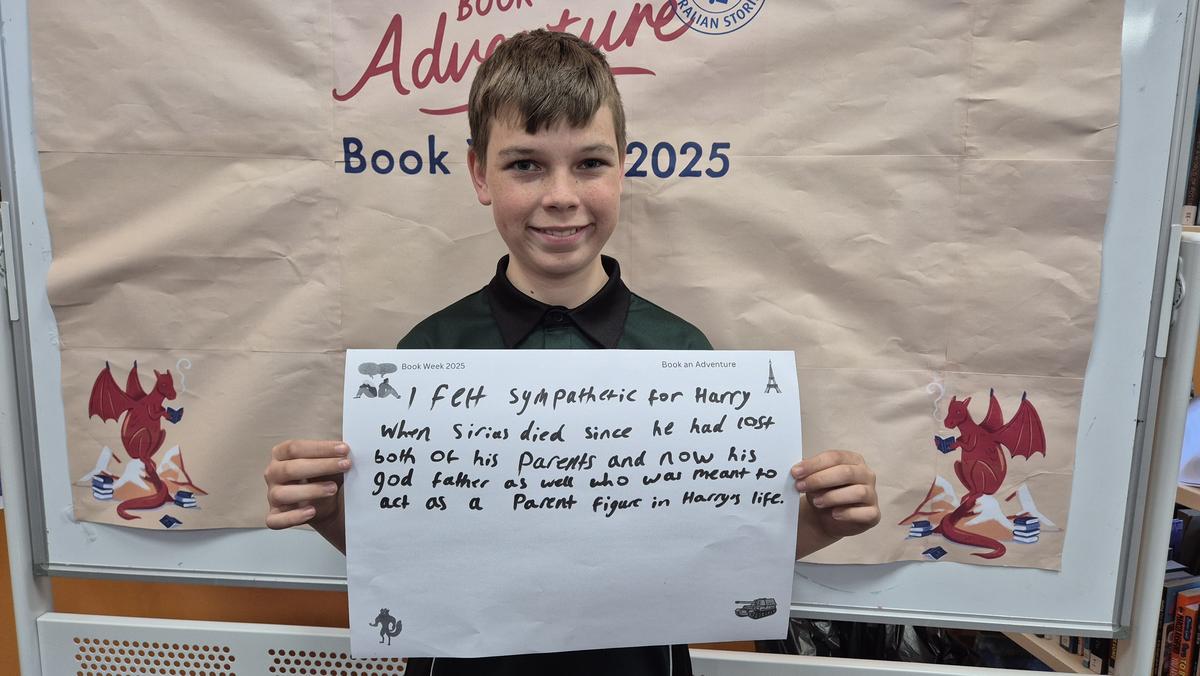 BOOK
Adventure
RALIAN STORI
Book W 2025
Book Week 2025
Book an Adventure
I felt sympathetic for Harry
when Sirius died since he had lost
both of his parents and now his
god father as well who was meant to
act as a parent figure in Harry's life.